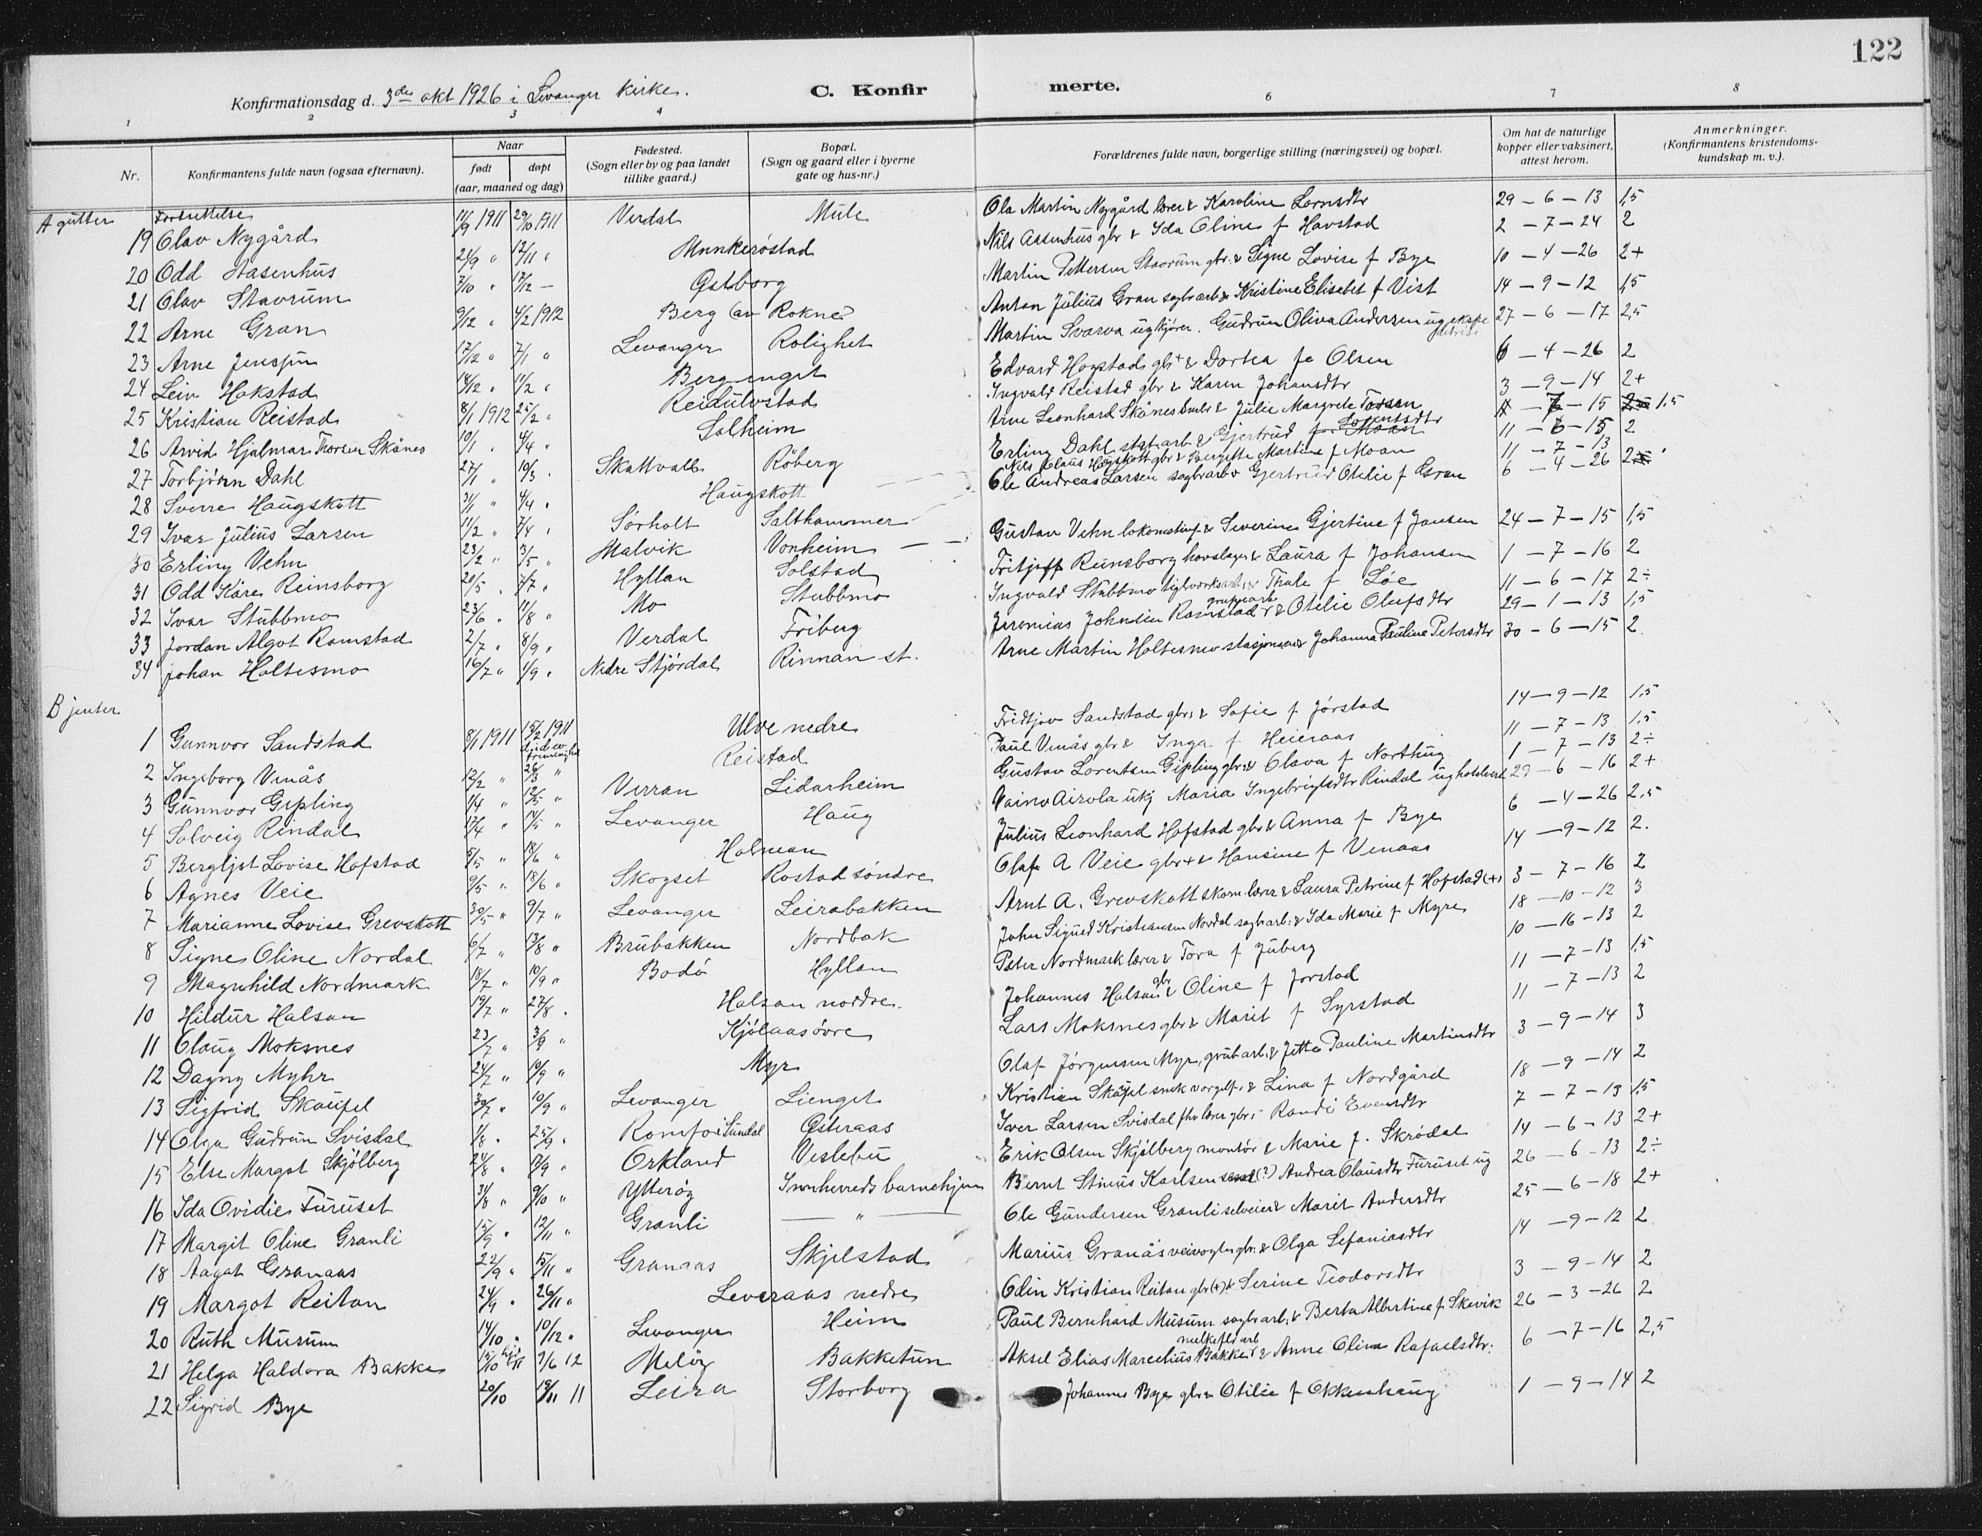 122
Konfirmationsdag d. 3die okt 1926 i Levanger kirke.
C. Konfirmerte.
1 2 3 4 6 7 8
Nr. Konfirmantens fulde navn (ogsaa efternavn). Naar født døpt (aar, maaned og dag) Fødested. (Sogn eller by og paa landet tillike gaard.) Bopæl. (Sogn og gaard eller i byerne gate og hus-nr.) Forældrenes fulde navn, borgerlige stilling (næringsvei) og bopæl. Om hat de naturlige kopper eller vaksinert, attest herom. Anmerkninger. (Konfirmantens kristendomskundskap m. v.).
A gutter Fortsættelse
19 Olav Nygård 11/9 1911 29/10 1911 Verdal Mule Ola Martin Nygård lærer & Karoline 29-6-13 1,5
20 Odd Aasenhus 21/9 " 12/11 " Munkerøstad Nils Assenhus gbr & Ida Oline f Havstad 2-7-24 2
21 Olav Stavrum 3/10 " 17/12 - Østborg Martin Pettersen Stavrum gbr. & Signe Lovise f Bye 10-4-26 2+
22 Arne Gran 9/12 " 4/2 1912 Berg av Rokne Anton Julius Gran sagbrarb & Kristine Elisabet f Vist 14-9-12 1,5
23 Arne 17/12 " 7/1 " Levanger Rolighet Martin Svarva ugkjører. Gudrun Oliva Andersen ug 27-6-17 2,5
24 Leiv Hokstad 14/12 " 11/2 " Berg enget Edvard Hogstad gbr + & Dortea fe Olsen 6-4-26 2
25 Kristian Reistad 8/1 1912 25/2 " Reidulvstad Ingvald Reistad gbr & Karen Johansdtr 3-9-14 2+
26 Arvid Hjalmar Thorsen Skånes 10/1 " 4/4 " Solheim Arne Leonhard Skånes & Julie Margrete Torsen 15 1,5
27 Torbjørn Dahl 27/1 " 10/3 " Skattvall Røberg Erling Dahl stst.arb & Gjertrud Lorentsdtr 11-6-15 2
28 Sverre Haugskott 31/1 " 4/4 " Haugskott Nils Claus Haugskott gbr & Bergitte Martine f Moan 11-7-13
29 Ivar Julius Larsen 11/2 " 7/4 " Sørholt Salthammer Ole Andreas Larsen sagbrarb & Gjertrud Otelie f Gran 6-4-26
30 Erling Vehn 23/2 " 3/5 " Malvik Vonheim Gustav Vehn lokomotivf. & Severine Gjertine f Jansen 24-7-15 1,5
31 Odd Kåre Reinsborg 20/5 " 7/7 " Hyllan Solstad Fritjoff Reinsborg hovslager & Laura f Johansen 1-7-16 2
32 Ivar Stubbmo 23/6 " 11/8 " Mo Stubbmo Ingvald Stubbmo teglverksarb. & Thale f. Løe 11-6-17 2÷
33 Jordan Algot Ramstad 2/7 " 8/9 " Verdal Friberg Jeremias Johnsen Ramstad grubearb & Otelie Olufsdtr 29-1-13 1,5
34 Johan Holtesmo 16/7 " 1/9 " Nedre Stjørdal Rinnan st. Arne Martin Holtesmo & Johanna Pauline Petersdtr 30-6-15 2
B jenter
1 Gunnvor Sandstad 8/1 1911 15/2 1911 Ulve nedre Fridtjov Sandstad gbr. & Sofie f Jørstad 14-9-12 1,5
2 Ingeborg Venås 12/2 " 26/3 " Reistad Paul Venås gbr & Inga f Heieraas 11-7-13 1,5
3 Gunnvor Gipling 1/4 " " Verran Lidarheim Gustav Lorentsen Gipling gbr. & Olava f Northug 1-7-13 2÷
4 Solveig Rindal 17/4 " 14/5 " Levanger Haug Vaino Airola ukj Maria Ingebrigtsdtr Rindal ug 29-6-16 2+
5 Bergljot Lovise Hofstad 5/5 " 18/6 " Holmean Julius Leonhard Hofstad gbr & Anna f Bye 6-4-26 2,5
6 Agnes Veie 9/5 " 18/6 " Skogset Rostad søndre Olaf A Veie gbr + & Hansine f Venaas 14-9-12 2.
7 Marianne Lovise Grevskott 30/5 " 9/7 " Levanger Leirabakken Arnt A. Grevskott skom. lærer & Laura Petrine f Hofstad (+) 3-7-16 2
8 Signe Oline Nordal 6/7 " 13/8 " Brubakken Nordbak John Sigurd Kristiansen Nordal sagbr.arb. & Ida Marie f Myre 18-10-12 3
9 Magnhild Nordmark 18/7 " 10/9 " Bodø Hyllan Peter Nordmark lærer & Tora f Juberg 10-16-13 2
10 Hildur Halsan 19/7 " 27/8 " Halsan nordre. Johannes Halsan gbr & Oline f Jørstad 11-7-13 1,5
11 Olaug Moksnes 23/7 " 3/9 " Kjølaas øvre Lars Moksnes gbr & Marit f Syrstad 11-7-13 2
12 Dagny Myhr 24/7 " 10/9 " Myr Olaf Jørgensen Myr, grubarb. & Jette Pauline Martinsdtr 3-9-14 3
13 Sigfrid Skaufel 30/7 " 10/9 " Levanger Lienget Kristian Skaufel & Lina f Nordgård 18-9-14 2
14 Olga Gudrun Svisdal 1/8 " 25/9 " Romfo i Sundal Østeraas Iver Larsen Svisdal fhv lærer gbr. Randi Evensdtr 7-7-13 1,5
15 Else Margot Skjølberg 24/8 " 17/9 " Orkland Veslebu Erik Olsen Skjølberg montør & Marie f. Skrødal 14-6-13 2+
16 Ida Ovidie Furuset 31/8 " 9/10 " Ytterøy Innherreds barnehjem Bernt Stinius Karlsen (?) Andrea Olausdtr Furuset ug 26-6-13 2÷
17 Margit Oline Granli 15/9 " 12/11 " Granli — " — Ole Gundersen Granli selveier & Marit Andersdtr 25-6-18 2+
18 Aagot Granaas 22/9 " 15/11 " Granaas Skjelstad Marius Granås veivogter gbr. & Olga Sefaniasdtr 14-9-12 2
19 Margot Reitan 24/9 " 26/11 " Leveraas nedre Odin Kristian Reitan gbr (+) & Serine Teodorsdtr 3-9-14 2
20 Ruth Musum 14/10 " 10/12 " Levanger Heim Paul Bernhard Musum sagbr.arb. & Berta Albertine f Skevik 26-3-26 2
21 Helga Haldora Bakke 15/10 11 9/6 12 Meløy Bakketun Aksel Elias Marcelius Bakke & Anne Olina Rafaelsdtr. 6-7-16 2,5
22 Sigrid Bye 20/10 19/11 11 Leira Storborg Johannes Bye gbr & Otilie f Okkenhaug 1-9-14 2